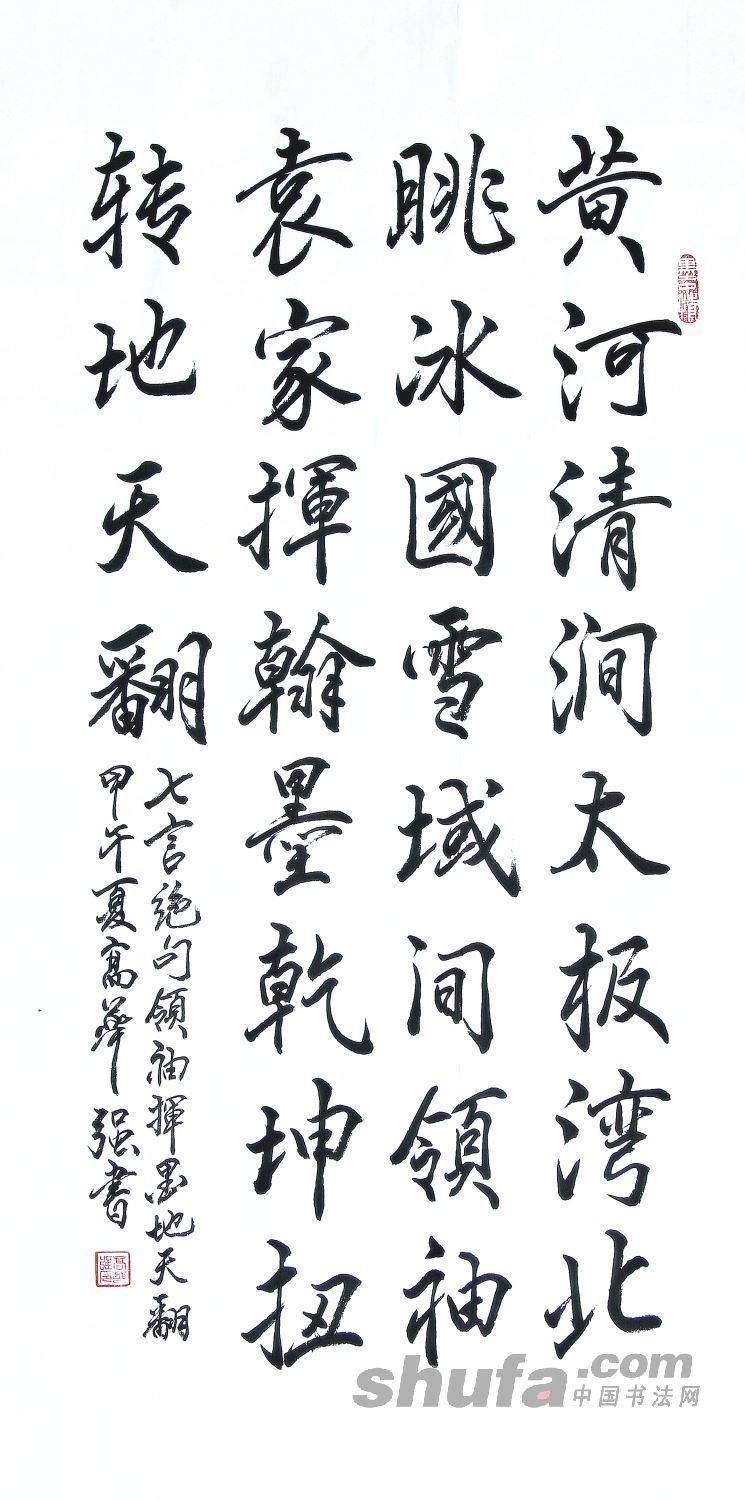 黄河清涧太极湾北
眺冰國雪域间領袖
袁家揮翰墨乾坤扭
转地天翻
七言绝句領袖揮墨地天翻
甲午夏高華强書
shufa.com
中国书法网